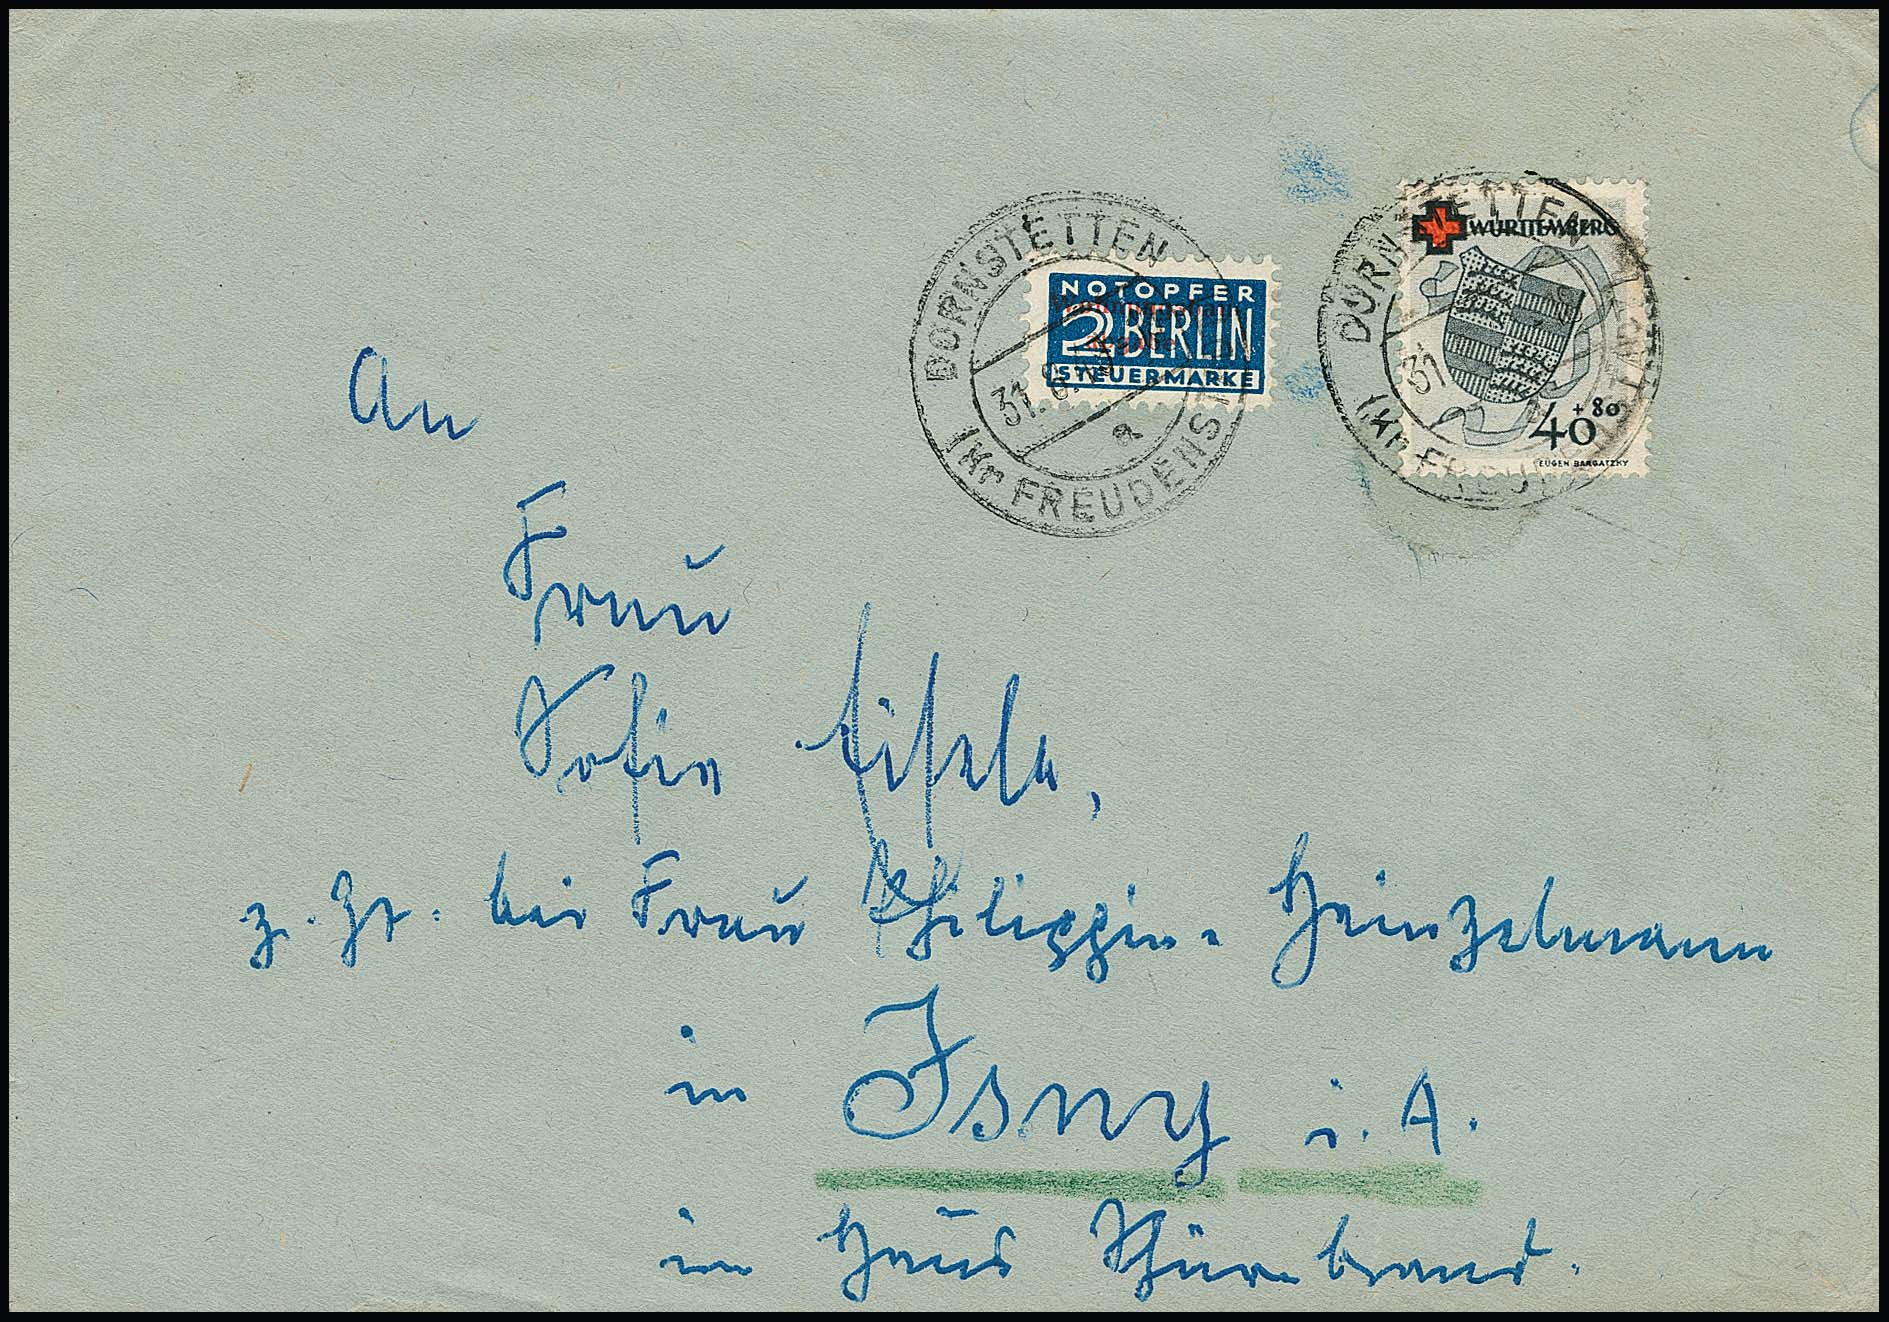 DORNSTETTEN
(Kr FREUDENST
31.8.
a
NOTOPFER
2 BERLIN
STEUERMARKE
DORNSTETTEN
(Kr FREUDENSTADT)
31
WÜRTTEMBERG
40 + 80
EUGEN BARGATZKY
An
Frau
Sofie Eisele,
z. Zt. bei Frau Philippine Heinzelmann
in Isny i. A.
im Haus Schürbrand.